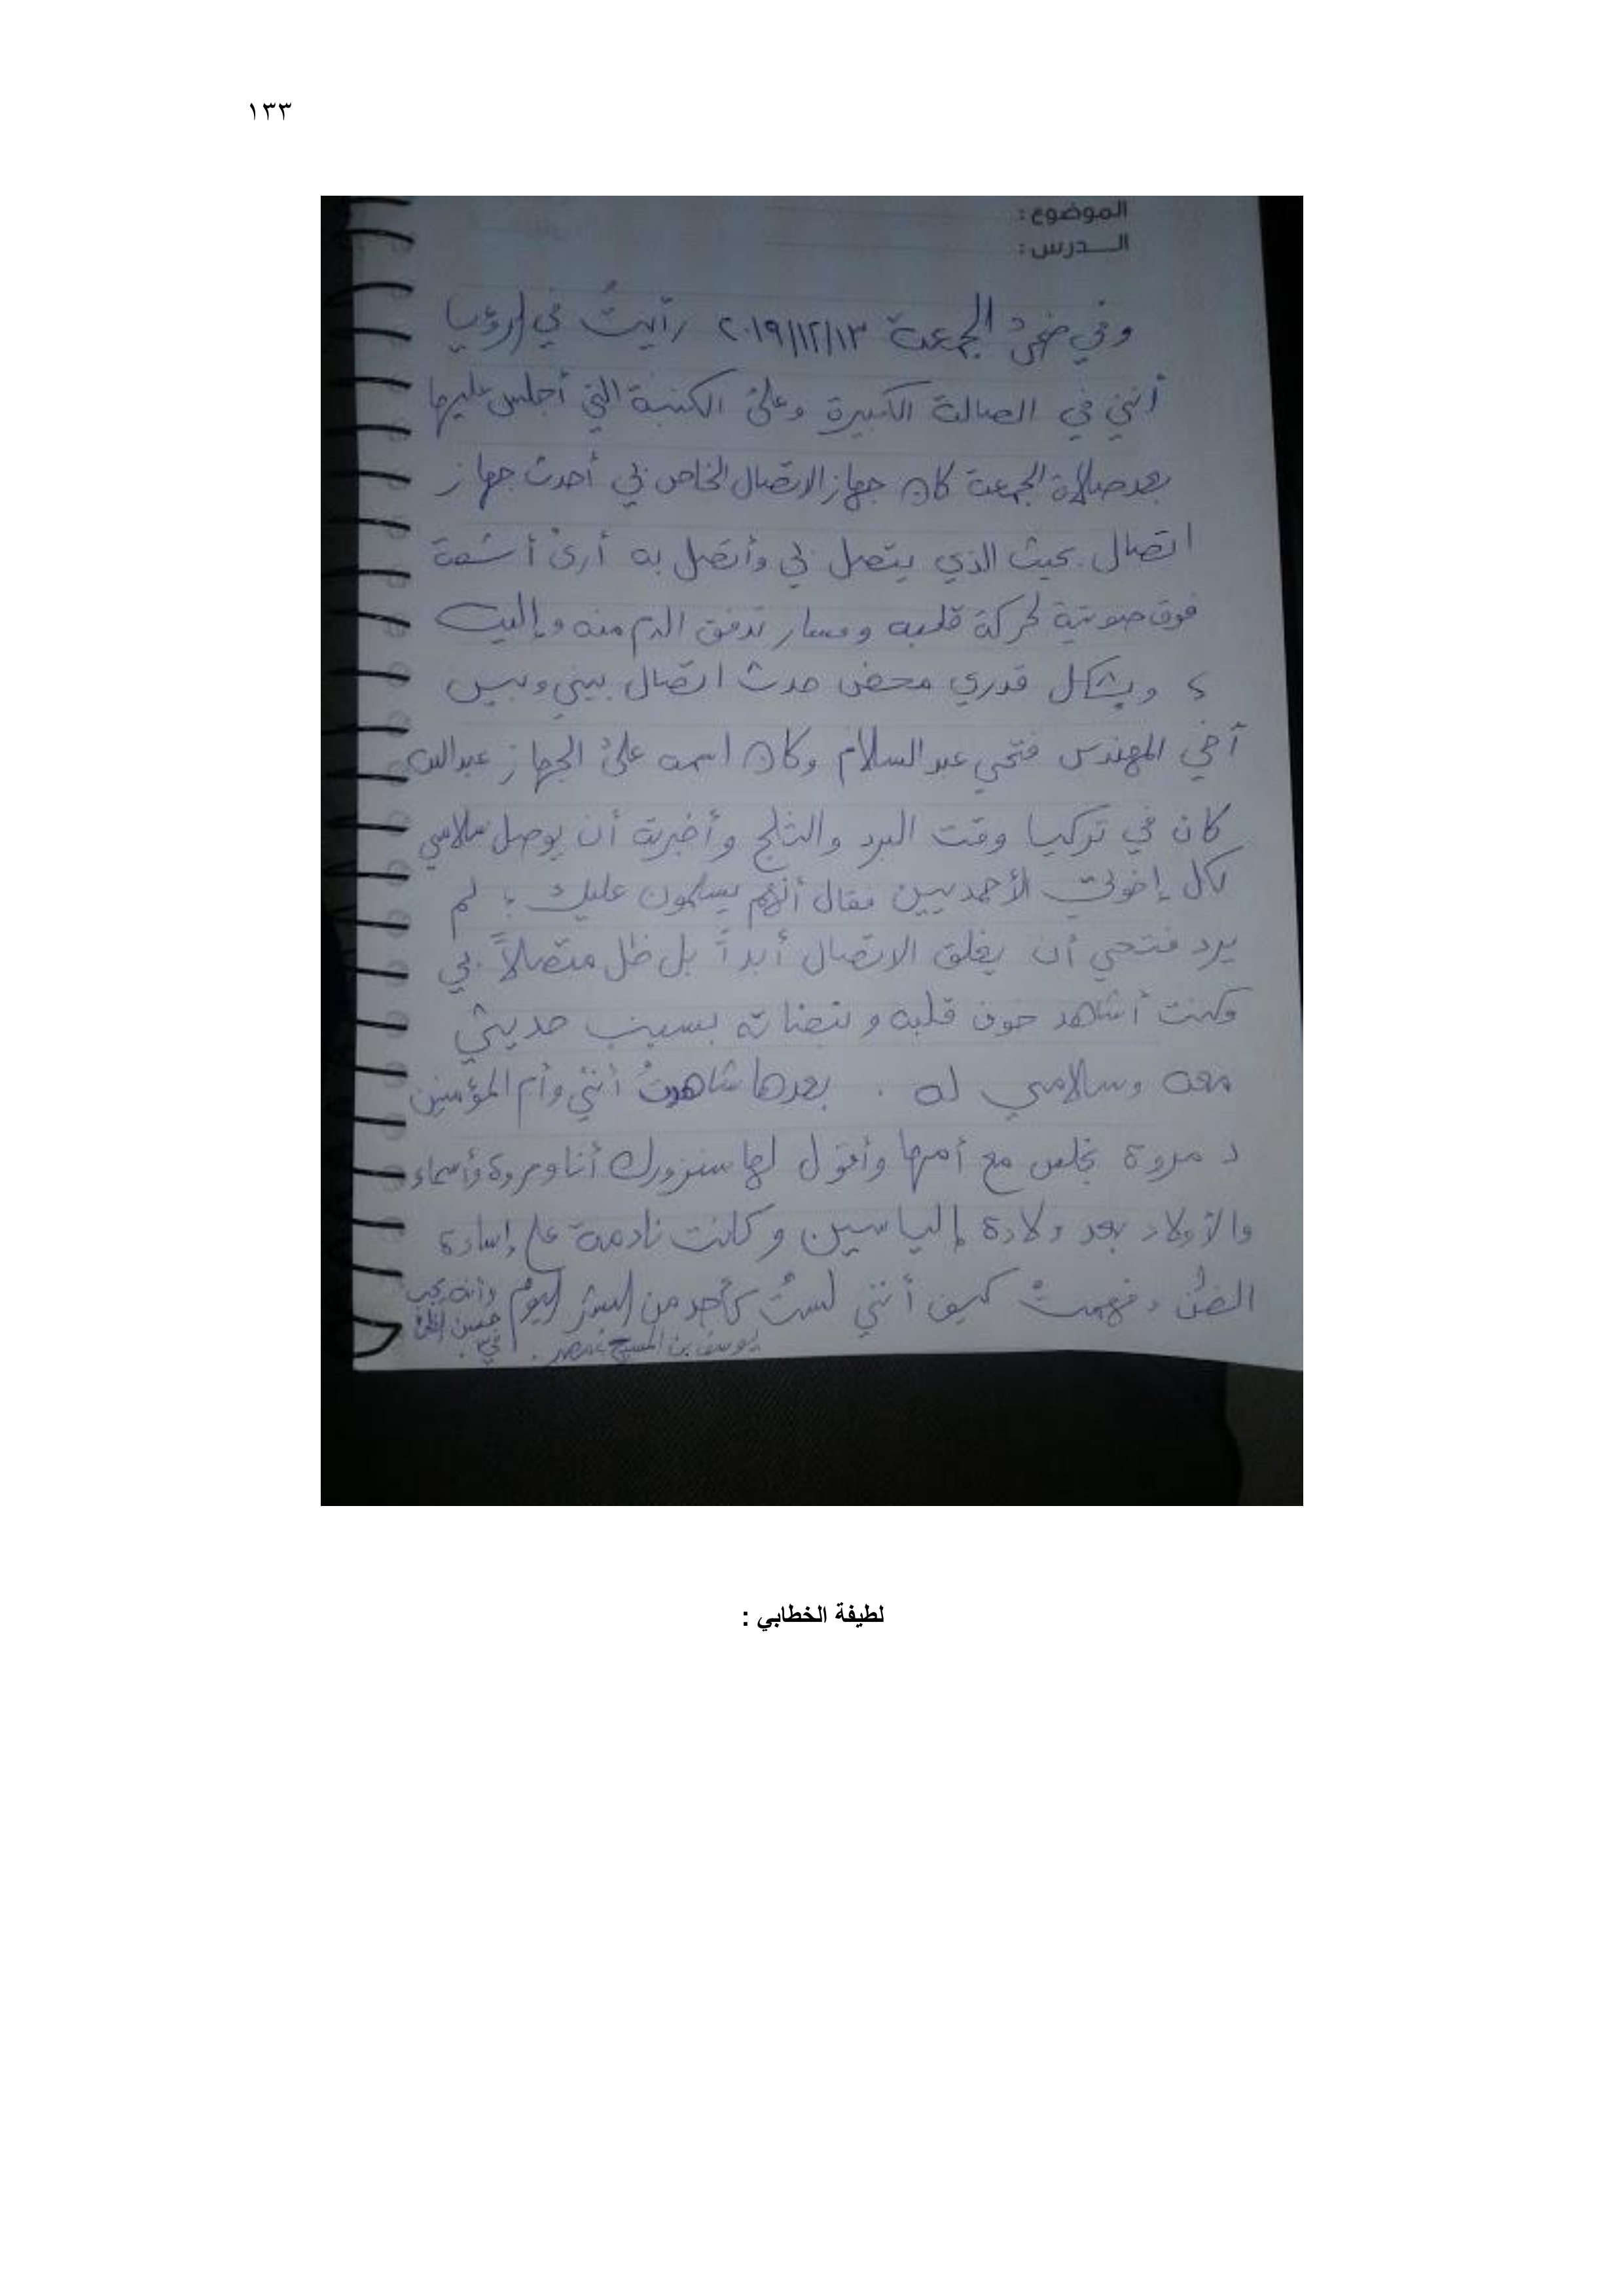 ١٣٣
الموضوع :
الـــدرس :
وفي ضحىٰ الجمعة ٢٠١٩/١٢/١٣ رأيتُ في الرؤيا
أنني في الصالة الكبيرة وعلىٰ الكنبة التي أجلس عليها
بعد صلاة الجمعة كان جهاز الاتصال الخاص بي أحدث جهاز
اتصال بحيث الذي يتصل بي وأتصل به أرىٰ أشعة
فوق صوتية لحركة قلبه ومسار تدفق الدم منه وإليه
، وبشكل قدري محض حدث اتصال بيني وبين
أخي المهندس فتحي عبد السلام وكان اسمه علىٰ الجهاز عبدالله
كان في تركيا وقت البرد والثلج وأخبرته أن يوصل سلامي
لكل إخوتي الأحمديين فقال أنهم يسلمون عليك ؛ لم
يرد فتحي أن يغلق الاتصال أبداً بل ظل متصلاً بي
وكنت أشاهد خوف قلبه ونبضاته بسبب حديثي
معه وسلامي له . بعدها شاهدتُ أنني وأم المؤمنين
د مروة نجلس مع أمها وأقول لها سنزورك أنا ومروة وأسماء
والأولاد بعد ولادة إلياسين وكانت نادمة على إساءة
الظن ، فهمتْ كيف أنني لستُ كأحد من البشر اليوم وأنه يجب
حسن الظن
فيّ .
يوسف بن المسيح
لطيفة الخطابي :